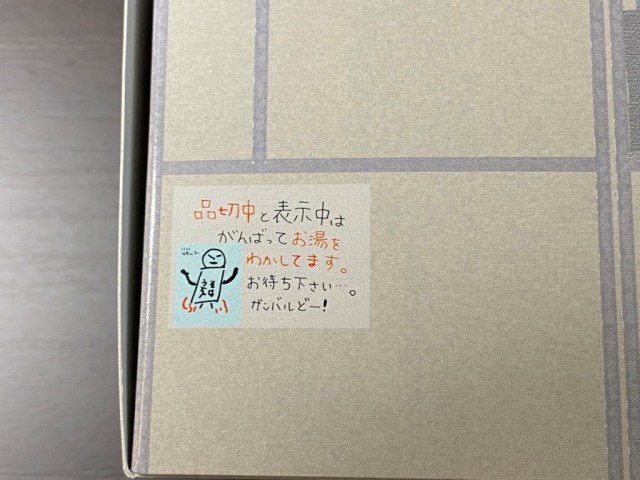 品切中と表示中は
がんばってお湯を
わかしてます。
お待ち下さい…。
ガンバルどー!